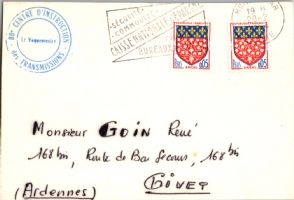 80e CENTRE D'INSTRUCTION
Le Vaguemestre
des TRANSMISSIONS
SÉCURITÉ
CAISSE NATIONALE
BUREAUX
19 H
REPUBLIQUE FRANÇAISE
AMIENS
0,05
REPUBLIQUE FRANÇAISE
AMIENS
0,05
Monsieur GOIN René
168 bis, Route de Bon Secours, 168 bis
GIVET
(Ardennes)